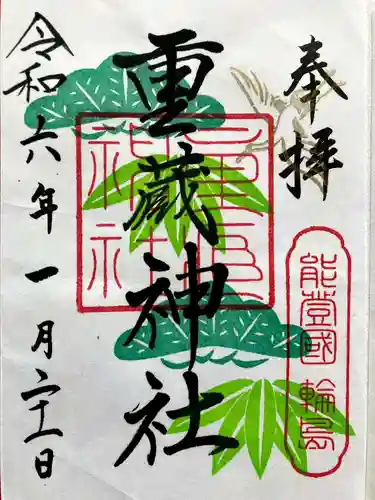 奉拝
能登國 輪島
重蔵神社
令和六年一月二十一日